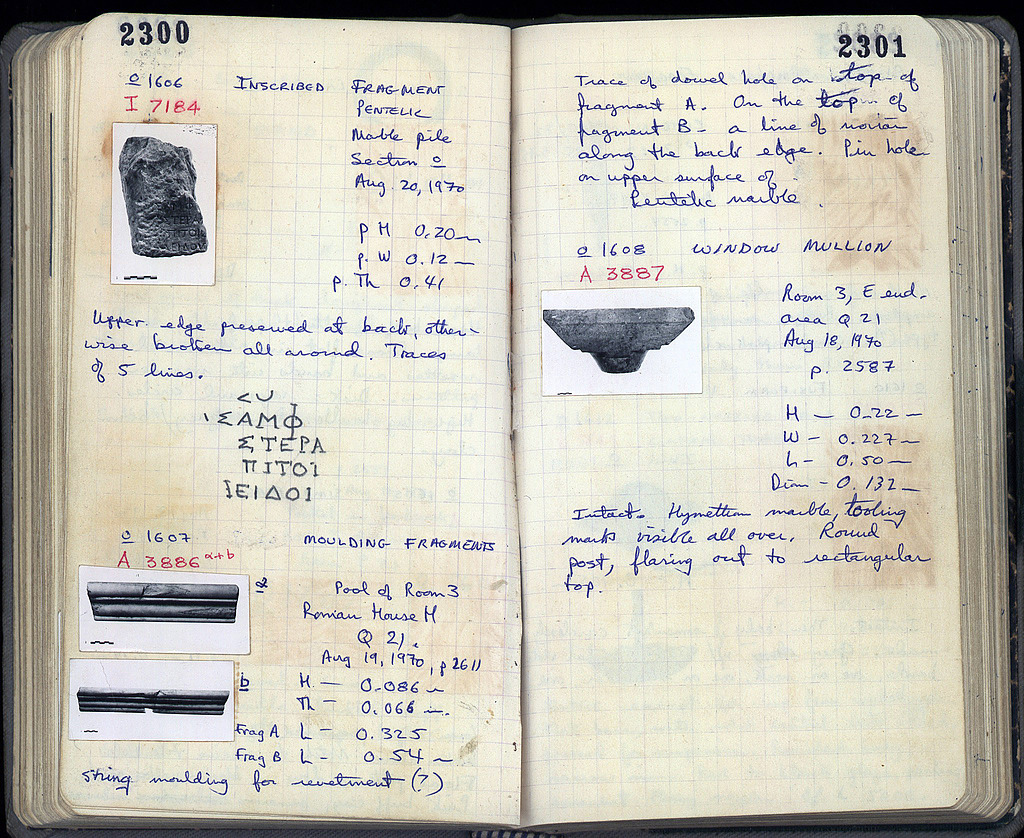 2300
o 1606 INSCRIBED FRAGMENT
I 7184 PENTELIC
Marble pile
Section o
Aug. 20, 1970
p H 0.20 m
p. W 0.12 —
p. Th 0.41
Upper edge preserved at back, other-
wise broken all around. Traces
of 5 lines.
ΣΑΜΦ
ΣΤΕΡΑ
ΠΙΤΟΙ
ΙΕΙΔΟΙ
o 1607 MOULDING FRAGMENTS
A 3886 a+b
a Pool of Room 3
Roman House H
Q 21.
Aug 19, 1970, p 2611
b H. — 0.086 m
Th — 0.066 m.
Frag A L — 0.325
Frag B L — 0.54 m
String moulding for revetment (?)
2301
Trace of dowel hole on top of
fragment A. On the top of
fragment B — a line of
along the back edge. Pin hole
on upper surface of
Pentelic marble.
o 1608 WINDOW MULLION
A 3887
Room 3, E end.
area Q 21
Aug 18, 1970
p. 2587
H — 0.22 —
W — 0.227 —
L — 0.50 —
Diam — 0.132 —
Intact. Hymettian marble, tooling
marks visible all over. Round
post, flaring out to rectangular
top.